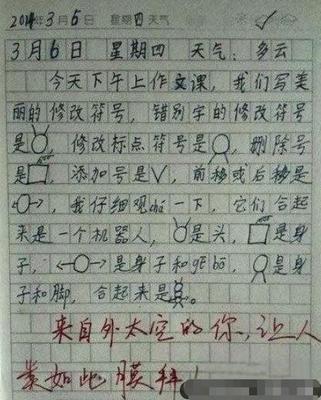 2014年3月6日 星期四 天气
3月6日 星期四 天气:多云
今天下午上作文课,我们写美
丽的修改符号,错别字的修改符号
是,修改标点符号是,删除号
是,添加号是V,前移或后移是
,我仔细观chá一下,它们合起
来是一个机器人,是头,是身
子,是身子和gēbo,是身
子和脚,合起来是。
来自外太空的你,让人
类如此膜拜!